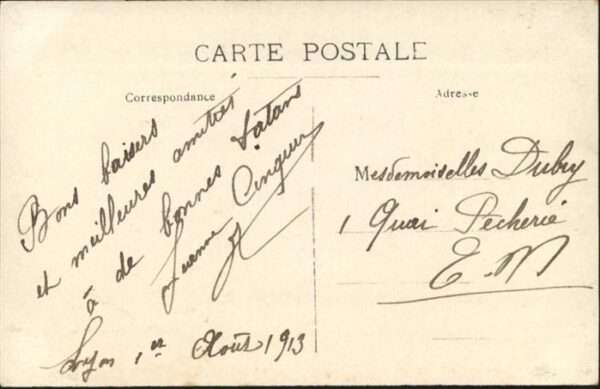 CARTE POSTALE
Correspondance
Adresse
Bons baisers
et meilleures amitiés
à de bonnes Satans
Jeanne
Lyon 1er Août 1913
Mesdemoiselles Dubry
1 Quai Pêcherie
E.M